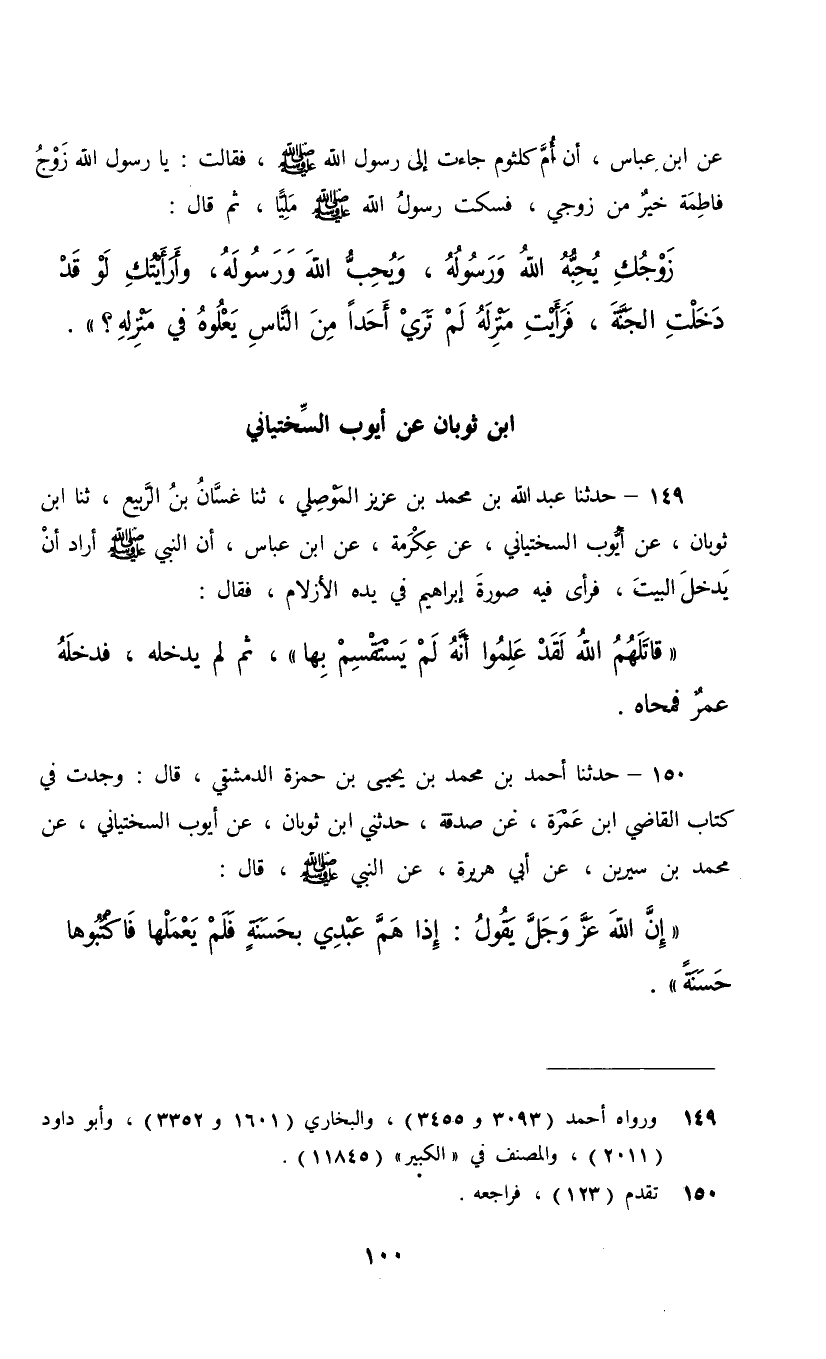 عن ابن عباس ، أن أُمَّ كلثوم جاءت إلى رسول الله ﷺ ، فقالت : يا رسول الله زَوْجُ
فاطِمَة خيرٌ من زوجي ، فسكت رسولُ الله ﷺ مَلِيًّا ، ثم قال :
زَوْجُكِ يُحِبُّهُ اللهُ وَرَسُولُهُ ، وَيُحِبُّ اللهَ وَرَسُولَهُ، وأَرَأَيْتُكِ لَوْ قَدْ
دَخَلْتِ الجَنَّةَ ، فَرَأَيْتِ مَنْزِلَهُ لَمْ تَرَيْ أَحَداً مِنَ النَّاسِ يَعْلُوهُ في مَنْزِلِهِ ؟ » .
ابن ثوبان عن أيوب السِّختياني
١٤٩ – حدثنا عبد الله بن محمد بن عزيز المَوْصِلي ، ثنا غسَّانُ بنُ الرَّبيع ، ثنا ابن
ثوبان ، عن أيُّوب السختياني ، عن عِكْرَمة ، عن ابن عباس ، أن النبي ﷺ أراد أنْ
يَدخلَ البيتَ ، فرأى فيه صورةَ إبراهيم في يده الأزلام ، فقال :
« قاتَلَهُمُ اللهُ لَقَدْ عَلِمُوا أنَّهُ لَمْ يَسْتَقْسِمْ بِها » ، ثم لم يدخله ، فدخلَهُ
عمرٌ فمحاه .
١٥٠ – حدثنا أحمد بن محمد بن يحيى بن حمزة الدمشقي ، قال : وجدت في
كتاب القاضي ابن عَمْرَة ، عن صدقة ، حدثني ابن ثوبان ، عن أيوب السختياني ، عن
محمد بن سيرين ، عن أبي هريرة ، عن النبي ﷺ ، قال :
« إنَّ اللهَ عَزَّ وَجَلَّ يَقُولُ : إذا هَمَّ عَبْدِي بحَسَنَةٍ فَلَمْ يَعْمَلْها فَاكْتُبُوها
حَسَنَةً » .
١٤٩ ورواه أحمد (٣٠٩٣ و ٣٤٥٥) ، والبخاري (١٦٠١ و ٣٣٥٢) ، وأبو داود
(٢٠١١) ، والمصنف في « الكبير » (١١٨٤٥) .
١٥٠ تقدم (١٢٣) ، فراجعه .
١٠٠